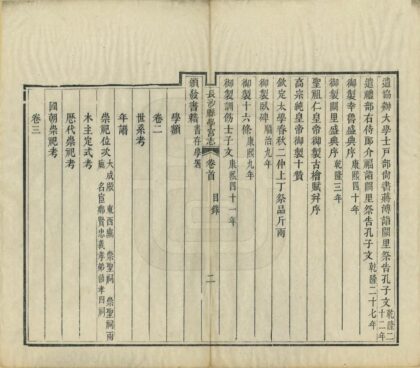 遣協辦大學士戶部尚書蔣溥詣闕里祭告孔子文乾隆二十二年
遣禮部右侍郎介福詣闕里祭告孔子文乾隆二十七年
御製幸魯盛典序康熙四十年
御製盛典序乾隆三年
聖祖仁皇帝御製古檜賦并序
高宗純皇帝御製十贊
欽定太學春秋二仲上丁祭品斤兩
御製臥碑順治九年
御製十六條康熙九年
御製訓飭士子文康熙四十一年
長沙縣學宮志 卷首 目錄 二
頒發書籍書存學署
學額
卷二
世系考
年譜
崇祀位次大成殿 東西廡 崇聖祠 崇聖祠兩廡 名宦鄉賢忠義孝弟節孝四祠
木主定式考
歷代崇祀考
國朝崇祀考
卷三